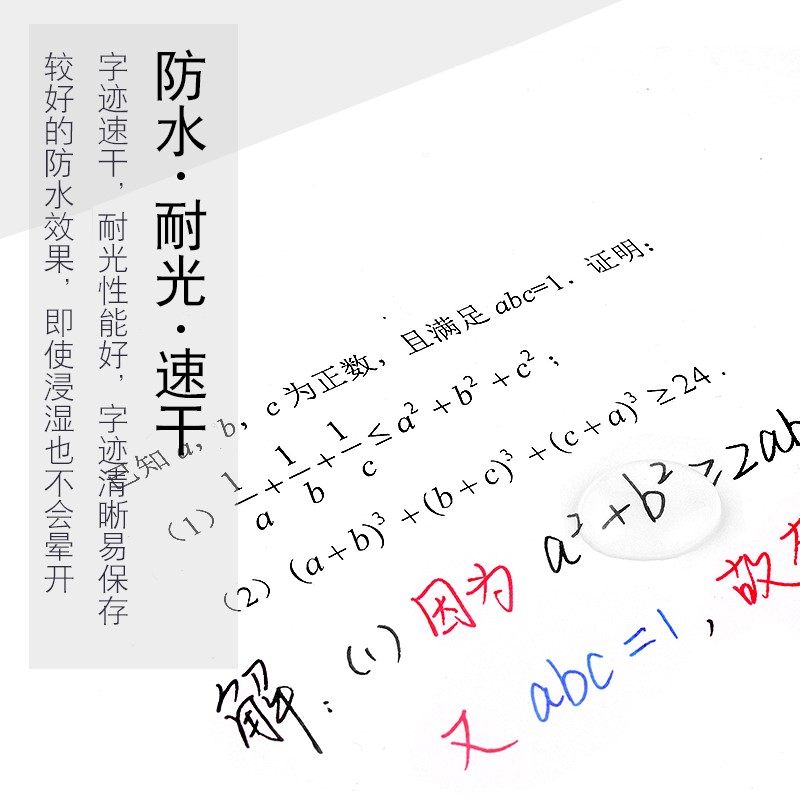 防水·耐光·速干
字迹速干，耐光性能好，字迹清晰易保存
较好的防水效果，即使浸湿也不会晕开
已知 a，b，c 为正数，且满足 abc=1．证明：
（1）1/a+1/b+1/c≤a²+b²+c²；
（2）(a+b)³+(b+c)³+(c+a)³≥24．
解：(1) 因为 a²+b²≥2ab
又 abc=1，故有